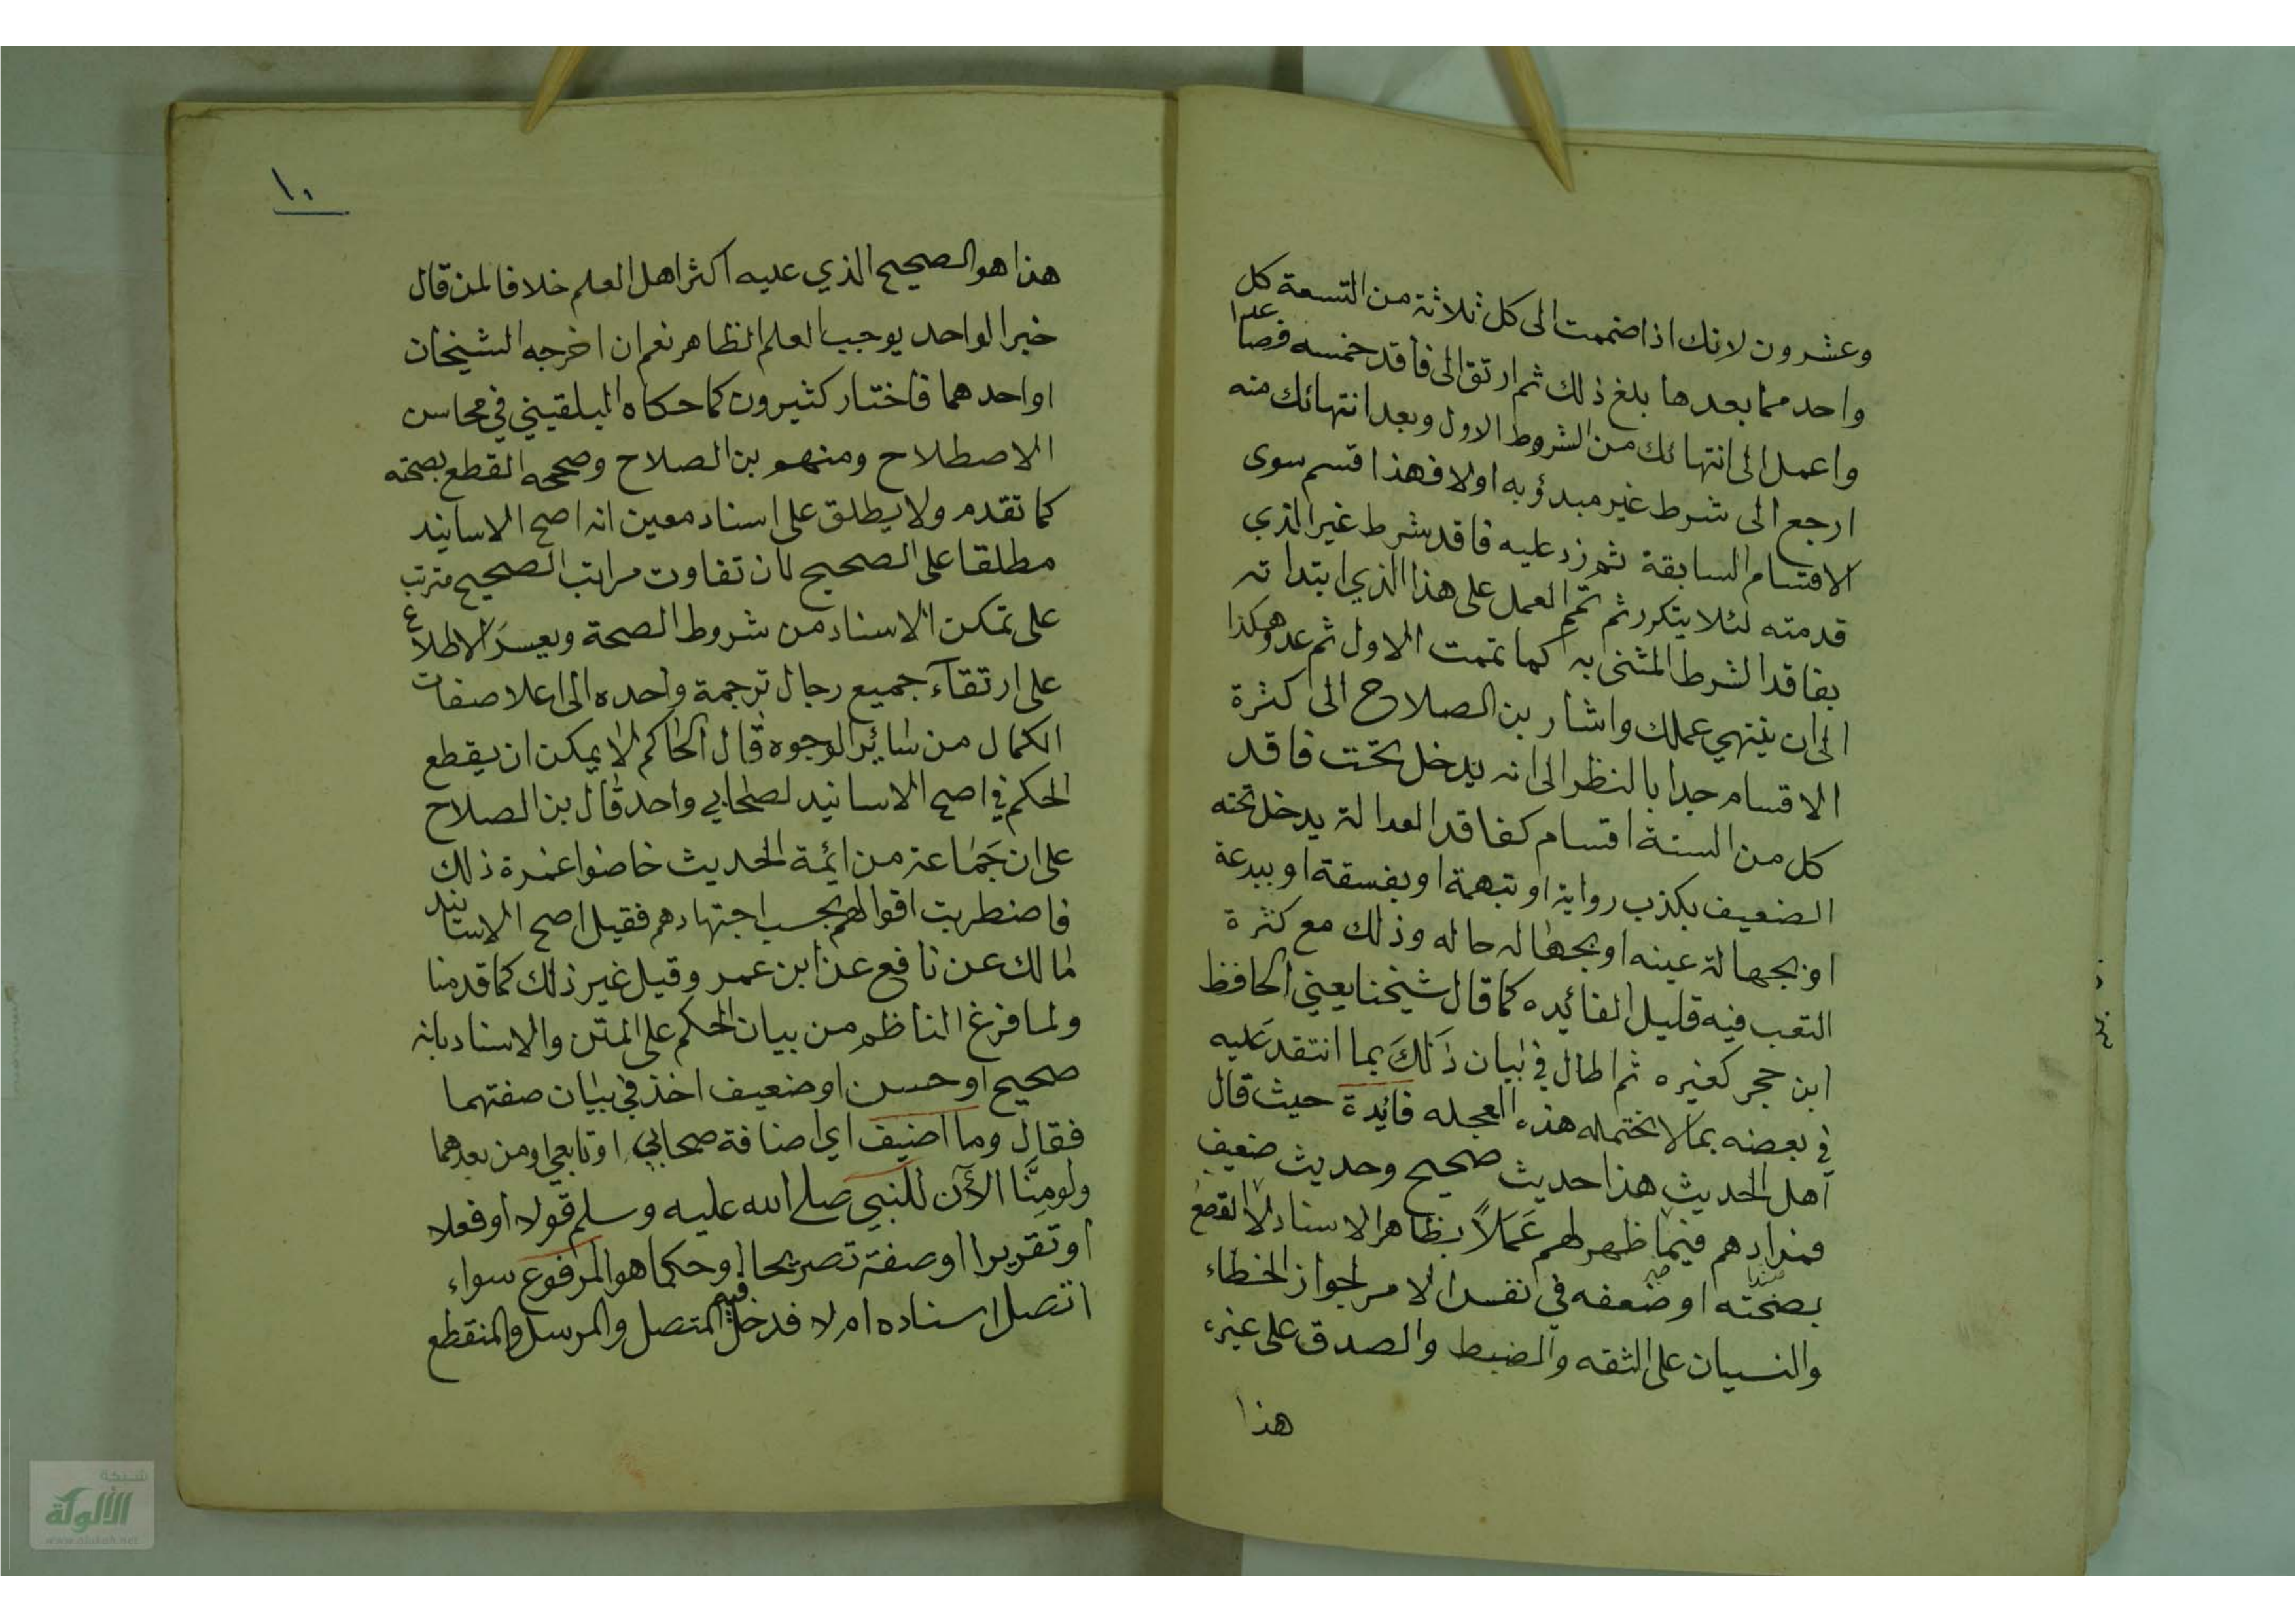 وعشرون لانك اذا ضممت الى كل ثلاثة من التسعة كل
واحد مما بعدها بلغ ذلك ثم ارتق الى فاقد خمسه فصاعدا
واعمل الى انتهائك من الشروط الاول وبعد انتهائك منه
ارجع الى شرط غير مبدؤ به اولا فهذا قسم سوى
الاقسام السابقة ثم زد عليه فاقد شرط غير الذي
قدمته لئلا يتكرر ثم تمم العمل على هذا الذي ابتداته
بفاقد الشرط المثنى به كما تممت الاول ثم عد وهكذا
الى ان ينتهي عملك واشار بن الصلاح الى كثرة
الاقسام جدا بالنظر الى انه يدخل تحت فاقد
كل من الستة اقسام كفاقد العدالة يدخل تحته
الضعيف بكذب رواية او تبهمة او بفسقة او ببدعة
او بجهالة عينه او بجهاله حاله وذلك مع كثرة
التعب فيه قليل الفائيده كما قال شيخنا يعني الحافظ
ابن حجر كغيره ثم اطال في بيان ذَلكَ بما انتقد عَليه
في بعضه بما لا تحتمله هذه العجله فائِدة حيث قال
اهل الحديث هذا حديث صحيح وحديث ضعيف
فمرادهم فيما ظهر لهم عَمَلاً بظاهر الاسناد لا القطع
بصحته او ضعفه في نفس الامر لجواز الخطاء
والنسيان على الثقه والضبط والصدق على غيره
هذا
١٠
هذا هو الصحيح الذي عليه اكثر اهل العلم خلافا لمن قال
خبر الواحد يوجب العلم الظاهر نعم ان اخرجه الشيخان
او احدهما فاختار كثيرون كما حكاه البلقيني في محاسن
الاصطلاح ومنهم بن الصلاح وصححه القطع بصحته
كما تقدم ولا يطلق على اسناد معين انه اصح الاسانيد
مطلقا على الصحيح لان تفاوت مراتب الصحيح مترتب
على تمكن الاسناد من شروط الصحة ويعسر الاطلاع
على ارتقآء جميع رجال ترجمة واحده الى اعلا صفات
الكمال من سَائِر الوجوه قال الحاكم لا يمكن ان يقطع
الحكم في اصح الاسانيد لصحابي واحد قال بن الصلاح
على ان جَمَاعة من ايمة الحديث خاضوا غمرة ذلك
فاضطربت اقوالهم بحسب اجتهادهم فقيل اصح الاسانيد
مالك عن نافع عن ابن عمر وقيل غير ذلك كما قدمنا
ولما فرغ الناظم من بيان الحكم على المتن والاسناد بانه
صحيح او حسن او ضعيف اخذ في بيان صفتهما
فقال وما اضيف اي اضافة صحابي او تابعي او من بعدهما
ولو مِنَّا الآن للنبي صلى الله عليه وسلم قولا او فعلا
او تقريرا او صفة تصريحا او حكما هو المرفوع سواء
اتصل اسناده ام لا فدخل فيه المتصل والمرسل والمنقطع
شبكة
الألوكة
www.alukah.net